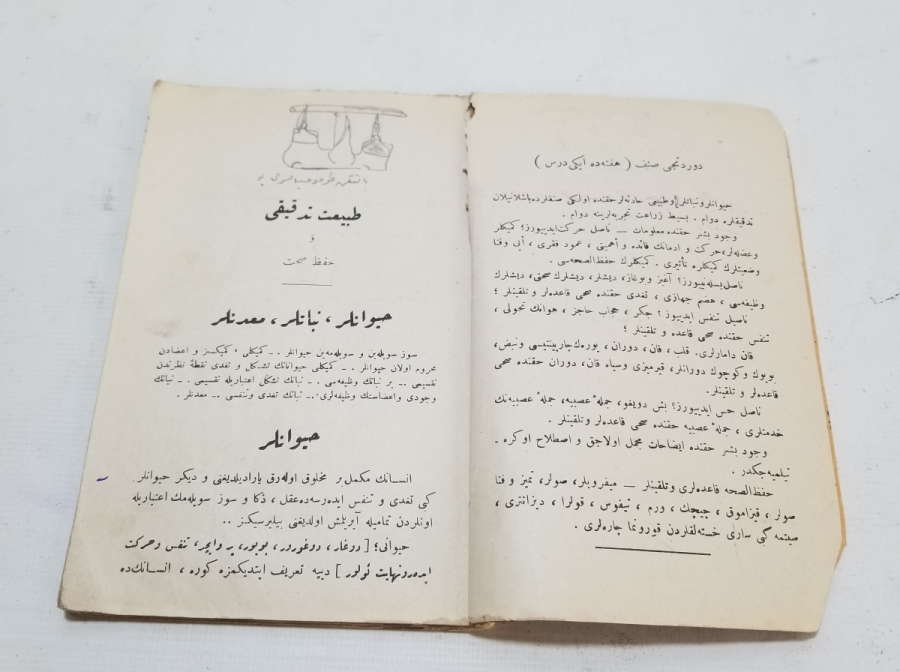 دوردنجی صنف ( هفته‌ده ایکی درس )
حیوانلر و نباتلر و طبیعی حادثه‌لر حقنده اولکی صنفلرده باشلانیلان
تدقیقلره دوام . بسیط زراعت تجربه‌لرینه دوام .
وجود بشر حقنده معلومات — ناصل حرکت ایدییورز؟ کمیکلر
وعضله‌لر، حرکت و ادمانك فائده و أهمیتی ، عمود فقری ، أیی وفنا
وضعیتلرك کمیکلره تأثیری . کمیکلرك حفظ‌الصحه‌سی .
ناصل بسله‌نییورز؟ آغیز وبوغاز، دیشلر، دیشلرك صحتی، دیشلرك
وظیفه‌سی ، هضم جهازی ، تغدی حقنده صحی قاعده‌لر و تلقینلر ؛
ناصیل تنفس ایدییوز ؟ جکر ، حجاب حاجز ، هوانك تحولی ،
تنفس حقنده صحی قاعده و تلقینلر ؛
قان دامارلری. قلب ، قان، دوران ، یوره‌ك چارپینتیسی ونبض،
بویوك وکوچوك دورانلر، قیرمیزی وسیاه قان، دوران حقنده صحی
قاعده‌لر و تلقینلر.
ناصل حس ایدییورز؟ بش دویغو، جملهٔ عصبیه، جملهٔ عصبیه‌نك
خدمتلری ، جملهٔ عصبیه حقنده صحی قاعده‌لر وتلقینلر .
وجود بشر حقنده ایضاحات مجمل اولاجق و اصطلاح اوکره ـ
تیلمیه‌جکدر .
حفظ‌الصحه قاعده‌لری وتلقینلر — میقروبلر، صولر، تمیز و فنا
صولر ، قیزاموق ، چیچك ، ورم ، تیفوس ، قولرا ، دیزانتری ،
صیتمه کبی ساری خسته‌لقلردن قورونما چاره‌لری .
طبیعت تدقیقی
و
حفظ صحت
حیوانلر ، نباتلر ، معدنلر
سوز سویله‌ین و سویله‌مه‌ین حیوانلر . ــ کمیکلی ، کمیکسز و اعضادن
محروم اولان حیوانلر . ــ کمیکلی حیواناتك تشکل و تغدی نقطهٔ نظرندن
تقسیمی . ــ بر نباتك وظیفه‌سی . ــ نباتك تشکل اعتباریله تقسیمی . ــ نباتك
وجودی واعضاسنك وظیفه‌لری . ــ نباتك تغدی وتنفسی . ــ معدنلر .
حیوانلر
انسانك مکمل بر مخلوق اوله‌رق یارادیلدیغنی و دیکر حیوانلر
کبی تغدی و تنفس ایده‌رسه‌ده عقل ، ذکا و سوز سویله‌مك اعتباریله
اونلردن تمامیله آیریلمش اولدیغنی بیلیرسیکز ..
حیوانی؛ [ دوغار، دوغورور، بویور، یر وایچر، تنفس وحرکت
ایده‌رونهایت ئولور ] دییه تعریف ایتدیکمزه کوره ، انسانك‌ده